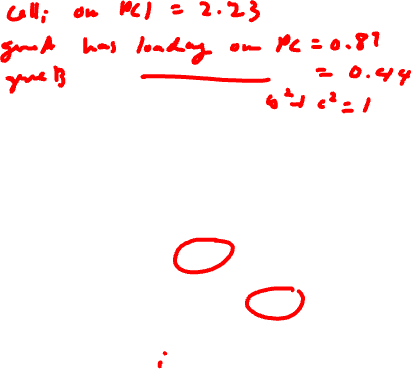 cell i on PC1 = 2.23
gene A has loading on PC = 0.89
gene B = 0.44
b²+c²=1
i